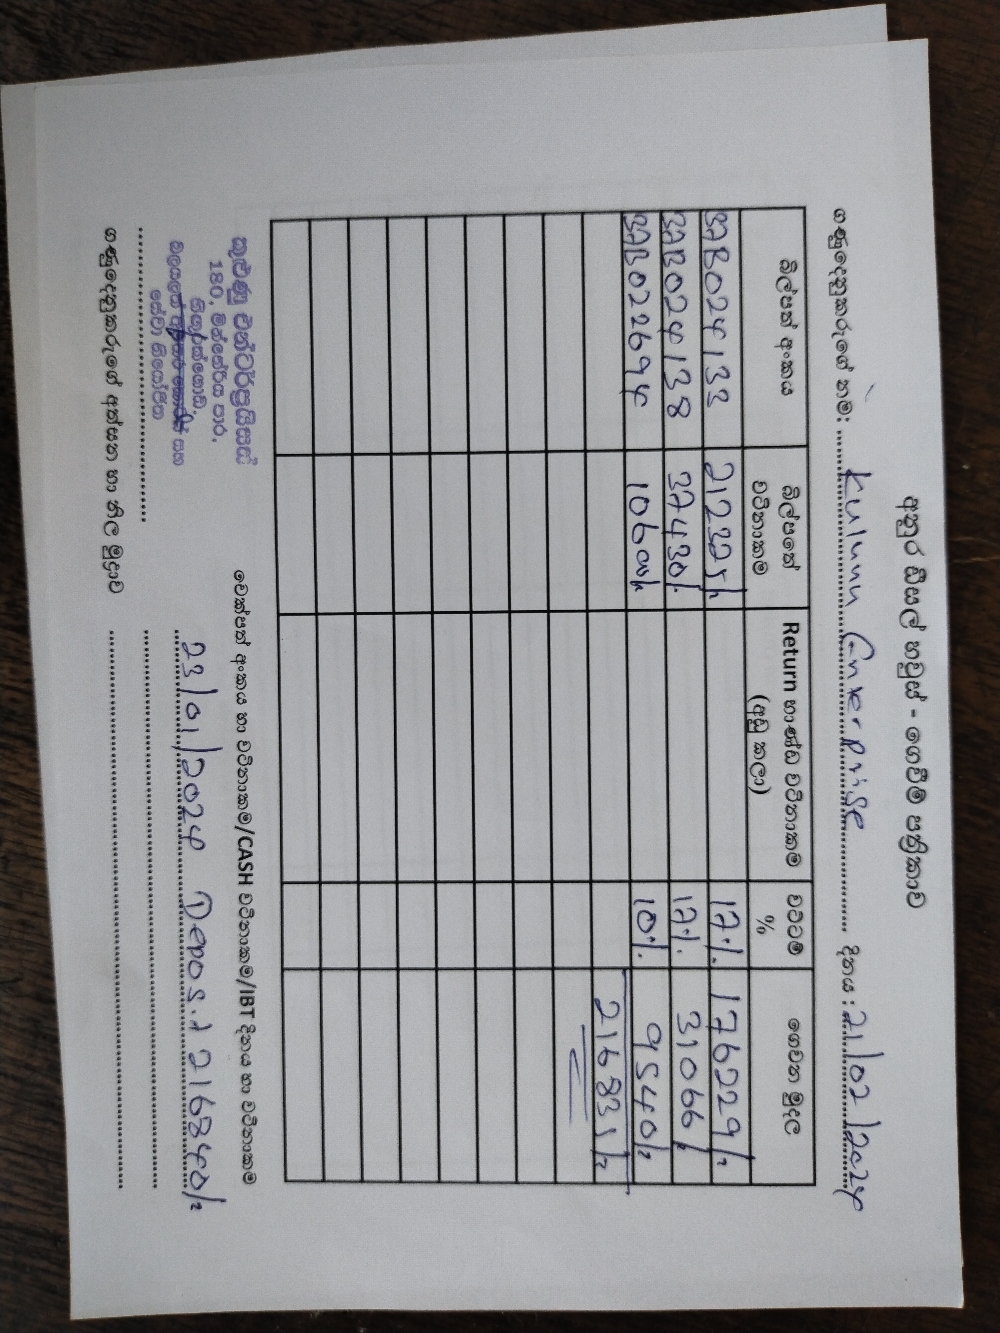 අනුර ඩීසල් හවුස් - ගෙවීම් පත්‍රිකාව
ගණුදෙනුකරුගේ නම: Kulunu Enterprise දිනය: 21/02/2024
බිල්පත් අංකය බිල්පතේ වටිනාකම Return භාණ්ඩ වටිනාකම (අඩු කලා) වට්ටම % ගෙවන මුදල
BAB024133 212325/= 17% 176229/=
BAB024138 37430/= 17% 31066/=
BAB022694 10600/= 10% 9540/=
216835/=
චෙක්පත් අංකය හා වටිනාකම/CASH වටිනාකම/IBT දිනය හා වටිනාකම
23/01/2024 Deposit 216840/=
කුළුණු එන්ටර්ප්‍රයිසස්
180, මන්තේරිය පාර,
සහ
සේවා නියෝජිත
ගණුදෙනුකරුගේ අත්සන හා නිල මුද්‍රාව